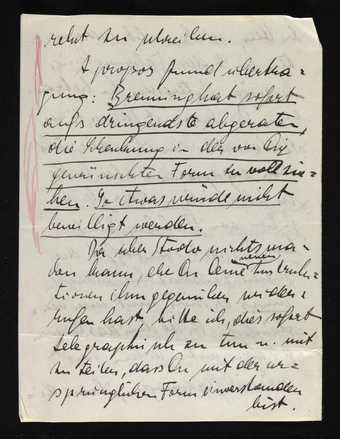 zu schreiben.
A propos Grundübertra=
gung: Brenning hat sofort
aufs dringendste abgeraten,
die Schenkung in der von Dir
gewünschten Form zu vollzie=
hen. So etwas würde nicht
bewilligt werden.
Da aber Stodo nichts ma=
chen kann, ehe Du Deine neuen Instruk=
tionen ihm gegenüber wider=
rufen hast, bitte ich, dies sofort
telegraphisch zu tun u. mit
zu teilen, dass Du mit der ur=
sprünglichen Form einverstanden
bist.